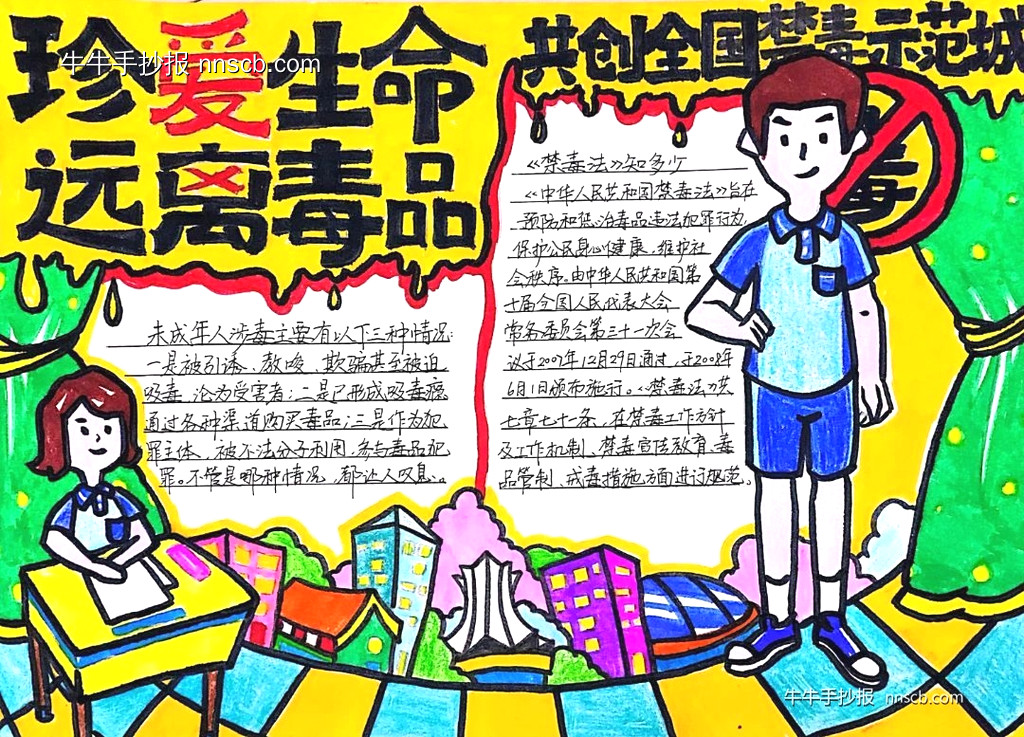 珍爱生命
远离毒品
牛牛手抄报 nnscb.com
共创全国禁毒示范城
未成年人涉毒主要有以下三种情况:
一是被引诱、教唆、欺骗甚至被迫
吸毒,沦为受害者;二是已形成吸毒瘾
通过各种渠道购买毒品;三是作为犯
罪主体,被不法分子利用,参与毒品犯
罪。不管是哪种情况,都让人叹息。
《禁毒法》知多少
《中华人民共和国禁毒法》旨在
预防和惩治毒品违法犯罪行为,
保护公民身心健康,维护社
会秩序。由中华人民共和国第
十届全国人民代表大会
常务委员会第三十一次会
议于2007年12月29日通过,于2008年
6月1日颁布施行。《禁毒法》共
七章七十一条,在禁毒工作方针
及工作机制、禁毒宣传教育、毒
品管制、戒毒措施方面进行规范。
毒
牛牛手抄报 nnscb.com